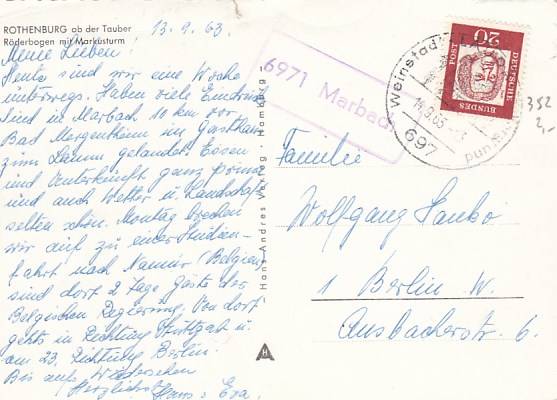 ROTHENBURG ob der Tauber
Röderbogen mit Markusturm
13.9.63.
Meine Lieben!
Heute sind wir eine Woche
unterwegs. Haben viele Eindrücke
sind in Marbach 10 km vor
Bad Mergentheim im Gasthaus
zum Lamm gelandet. Essen
und Unterkunft ganz prima
und auch Wetter u. Landschaft
selten schön. Montag brechen
wir auf zu einer Studien-
fahrt nach Namur (Belgien)
sind dort 2 Tage Gäste der
Belgischen Regierung. Von dort
gehts in Richtung Stuttgart u.
am 23. Richtung Berlin.
Bis aufs Wiedersehen
Herzlichst Hans u. Eva.
Hans Andres Verlag - Hamburg
6971 Marbach
Weinstadt
14.9.63
697
20
DEUTSCHE
BUNDES
POST
352
2,-
Familie
Wolfgang
1 Berlin W.
Ansbacherstr. 6.